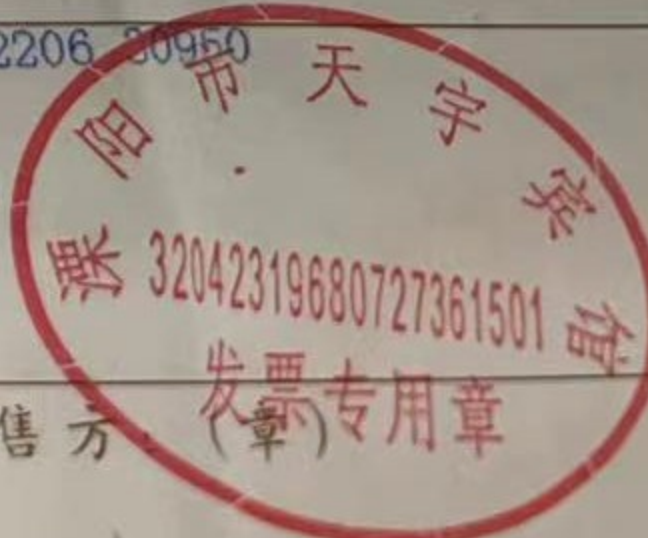 2206 30950
溧阳市天宇宾馆
32042319680727361501
发票专用章
售方：（章）